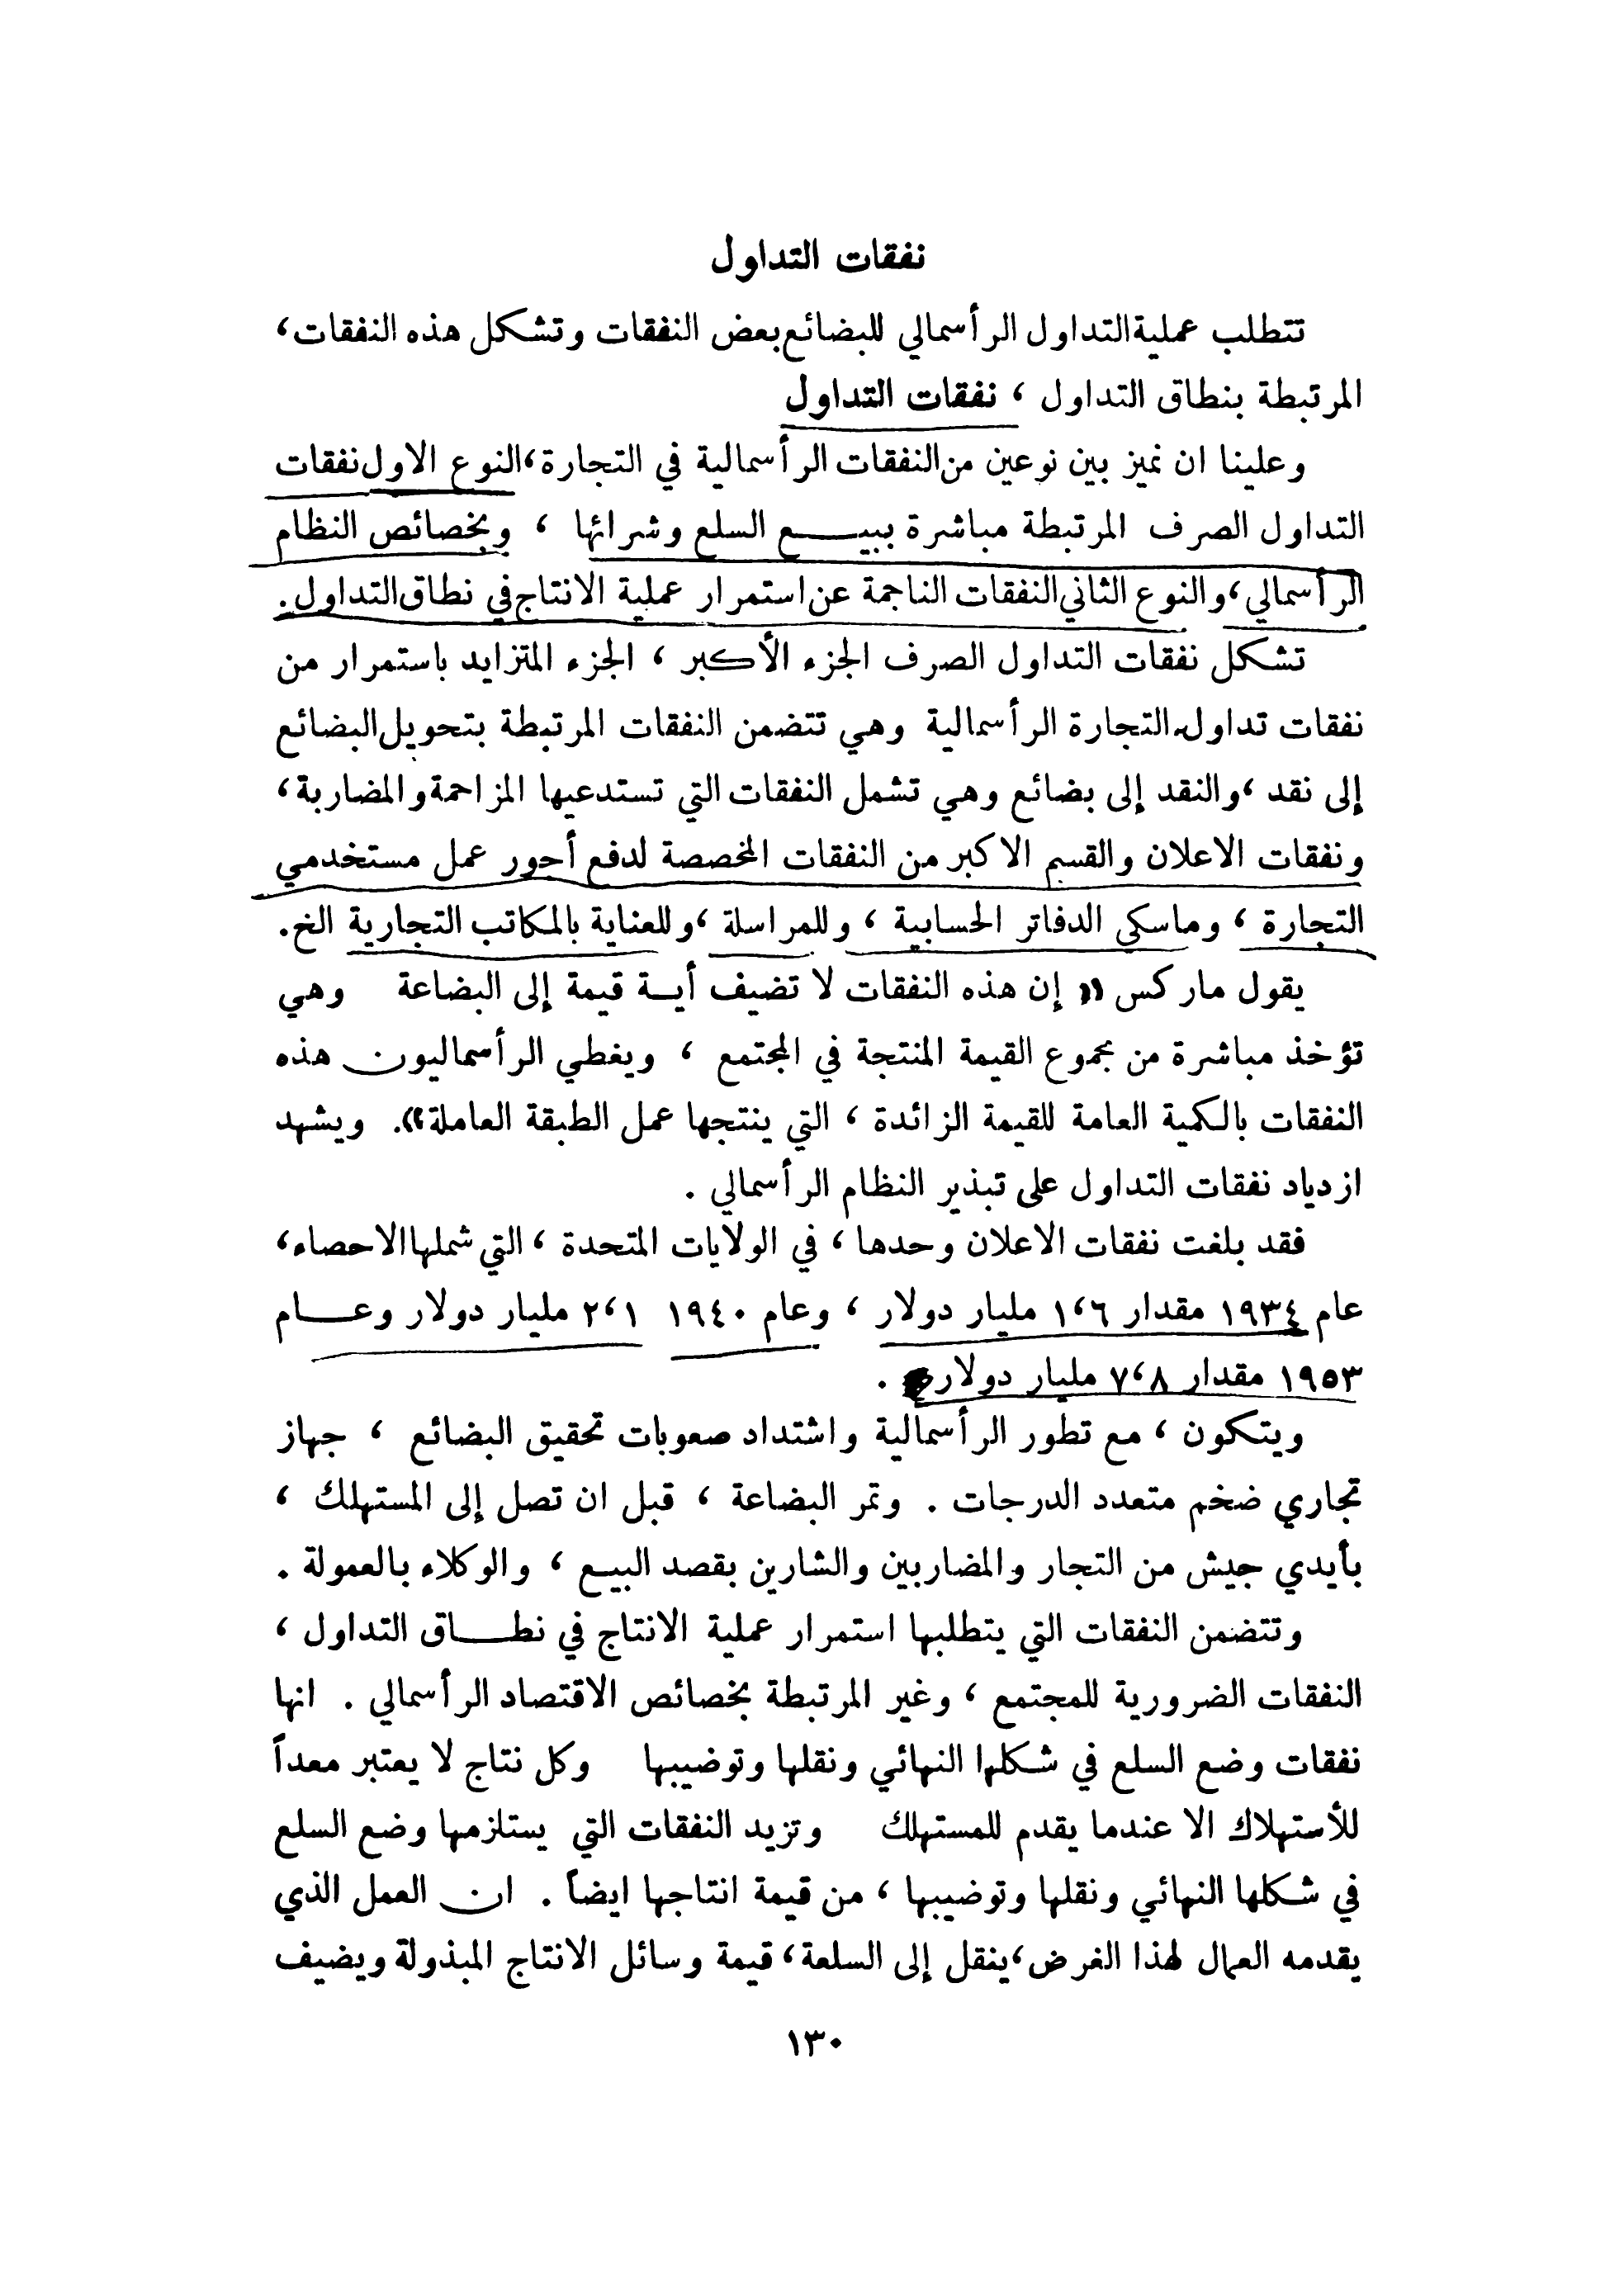 نفقات التداول
تتطلب عملية التداول الرأسمالي للبضائع بعض النفقات وتشكل هذه النفقات،
المرتبطة بنطاق التداول ، نفقات التداول
وعلينا ان نميز بين نوعين من النفقات الرأسمالية في التجارة، النوع الاول نفقات
التداول الصرف المرتبطة مباشرة ببيع السلع وشرائها ، وبخصائص النظام
الرأسمالي، والنوع الثاني النفقات الناجمة عن استمرار عملية الانتاج في نطاق التداول.
تشكل نفقات التداول الصرف الجزء الأكبر ، الجزء المتزايد باستمرار من
نفقات تداول التجارة الرأسمالية وهي تتضمن النفقات المرتبطة بتحويل البضائع
إلى نقد ، والنقد إلى بضائع وهي تشمل النفقات التي تستدعيها المزاحمة والمضاربة،
ونفقات الاعلان والقسم الاكبر من النفقات المخصصة لدفع أجور عمل مستخدمي
التجارة ، وماسكي الدفاتر الحسابية ، وللمراسلة ، وللعناية بالمكاتب التجارية الخ.
يقول ماركس « إن هذه النفقات لا تضيف أية قيمة إلى البضاعة وهي
تؤخذ مباشرة من مجموع القيمة المنتجة في المجتمع ، ويغطي الرأسماليون هذه
النفقات بالكمية العامة للقيمة الزائدة ، التي ينتجها عمل الطبقة العاملة». ويشهد
ازدياد نفقات التداول على تبذير النظام الرأسمالي .
فقد بلغت نفقات الاعلان وحدها ، في الولايات المتحدة ، التي شملها الاحصاء،
عام ١٩٣٤ مقدار ١،٦ مليار دولار ، وعام ١٩٤٠ ٢،١ مليار دولار وعام
١٩٥٣ مقدار ٧،٨ مليار دولار .
ويتكون ، مع تطور الرأسمالية واشتداد صعوبات تحقيق البضائع ، جهاز
تجاري ضخم متعدد الدرجات . وتمر البضاعة ، قبل ان تصل إلى المستهلك ،
بأيدي جيش من التجار والمضاربين والشارين بقصد البيع ، والوكلاء بالعمولة .
وتتضمن النفقات التي يتطلبها استمرار عملية الانتاج في نطاق التداول ،
النفقات الضرورية للمجتمع ، وغير المرتبطة بخصائص الاقتصاد الرأسمالي . انها
نفقات وضع السلع في شكلها النهائي ونقلها وتوضيبها وكل نتاج لا يعتبر معداً
للأستهلاك الا عندما يقدم للمستهلك وتزيد النفقات التي يستلزمها وضع السلع
في شكلها النهائي ونقلها وتوضيبها ، من قيمة انتاجها ايضاً . ان العمل الذي
يقدمه العمال لهذا الغرض، ينقل إلى السلعة، قيمة وسائل الانتاج المبذولة ويضيف
١٣٠